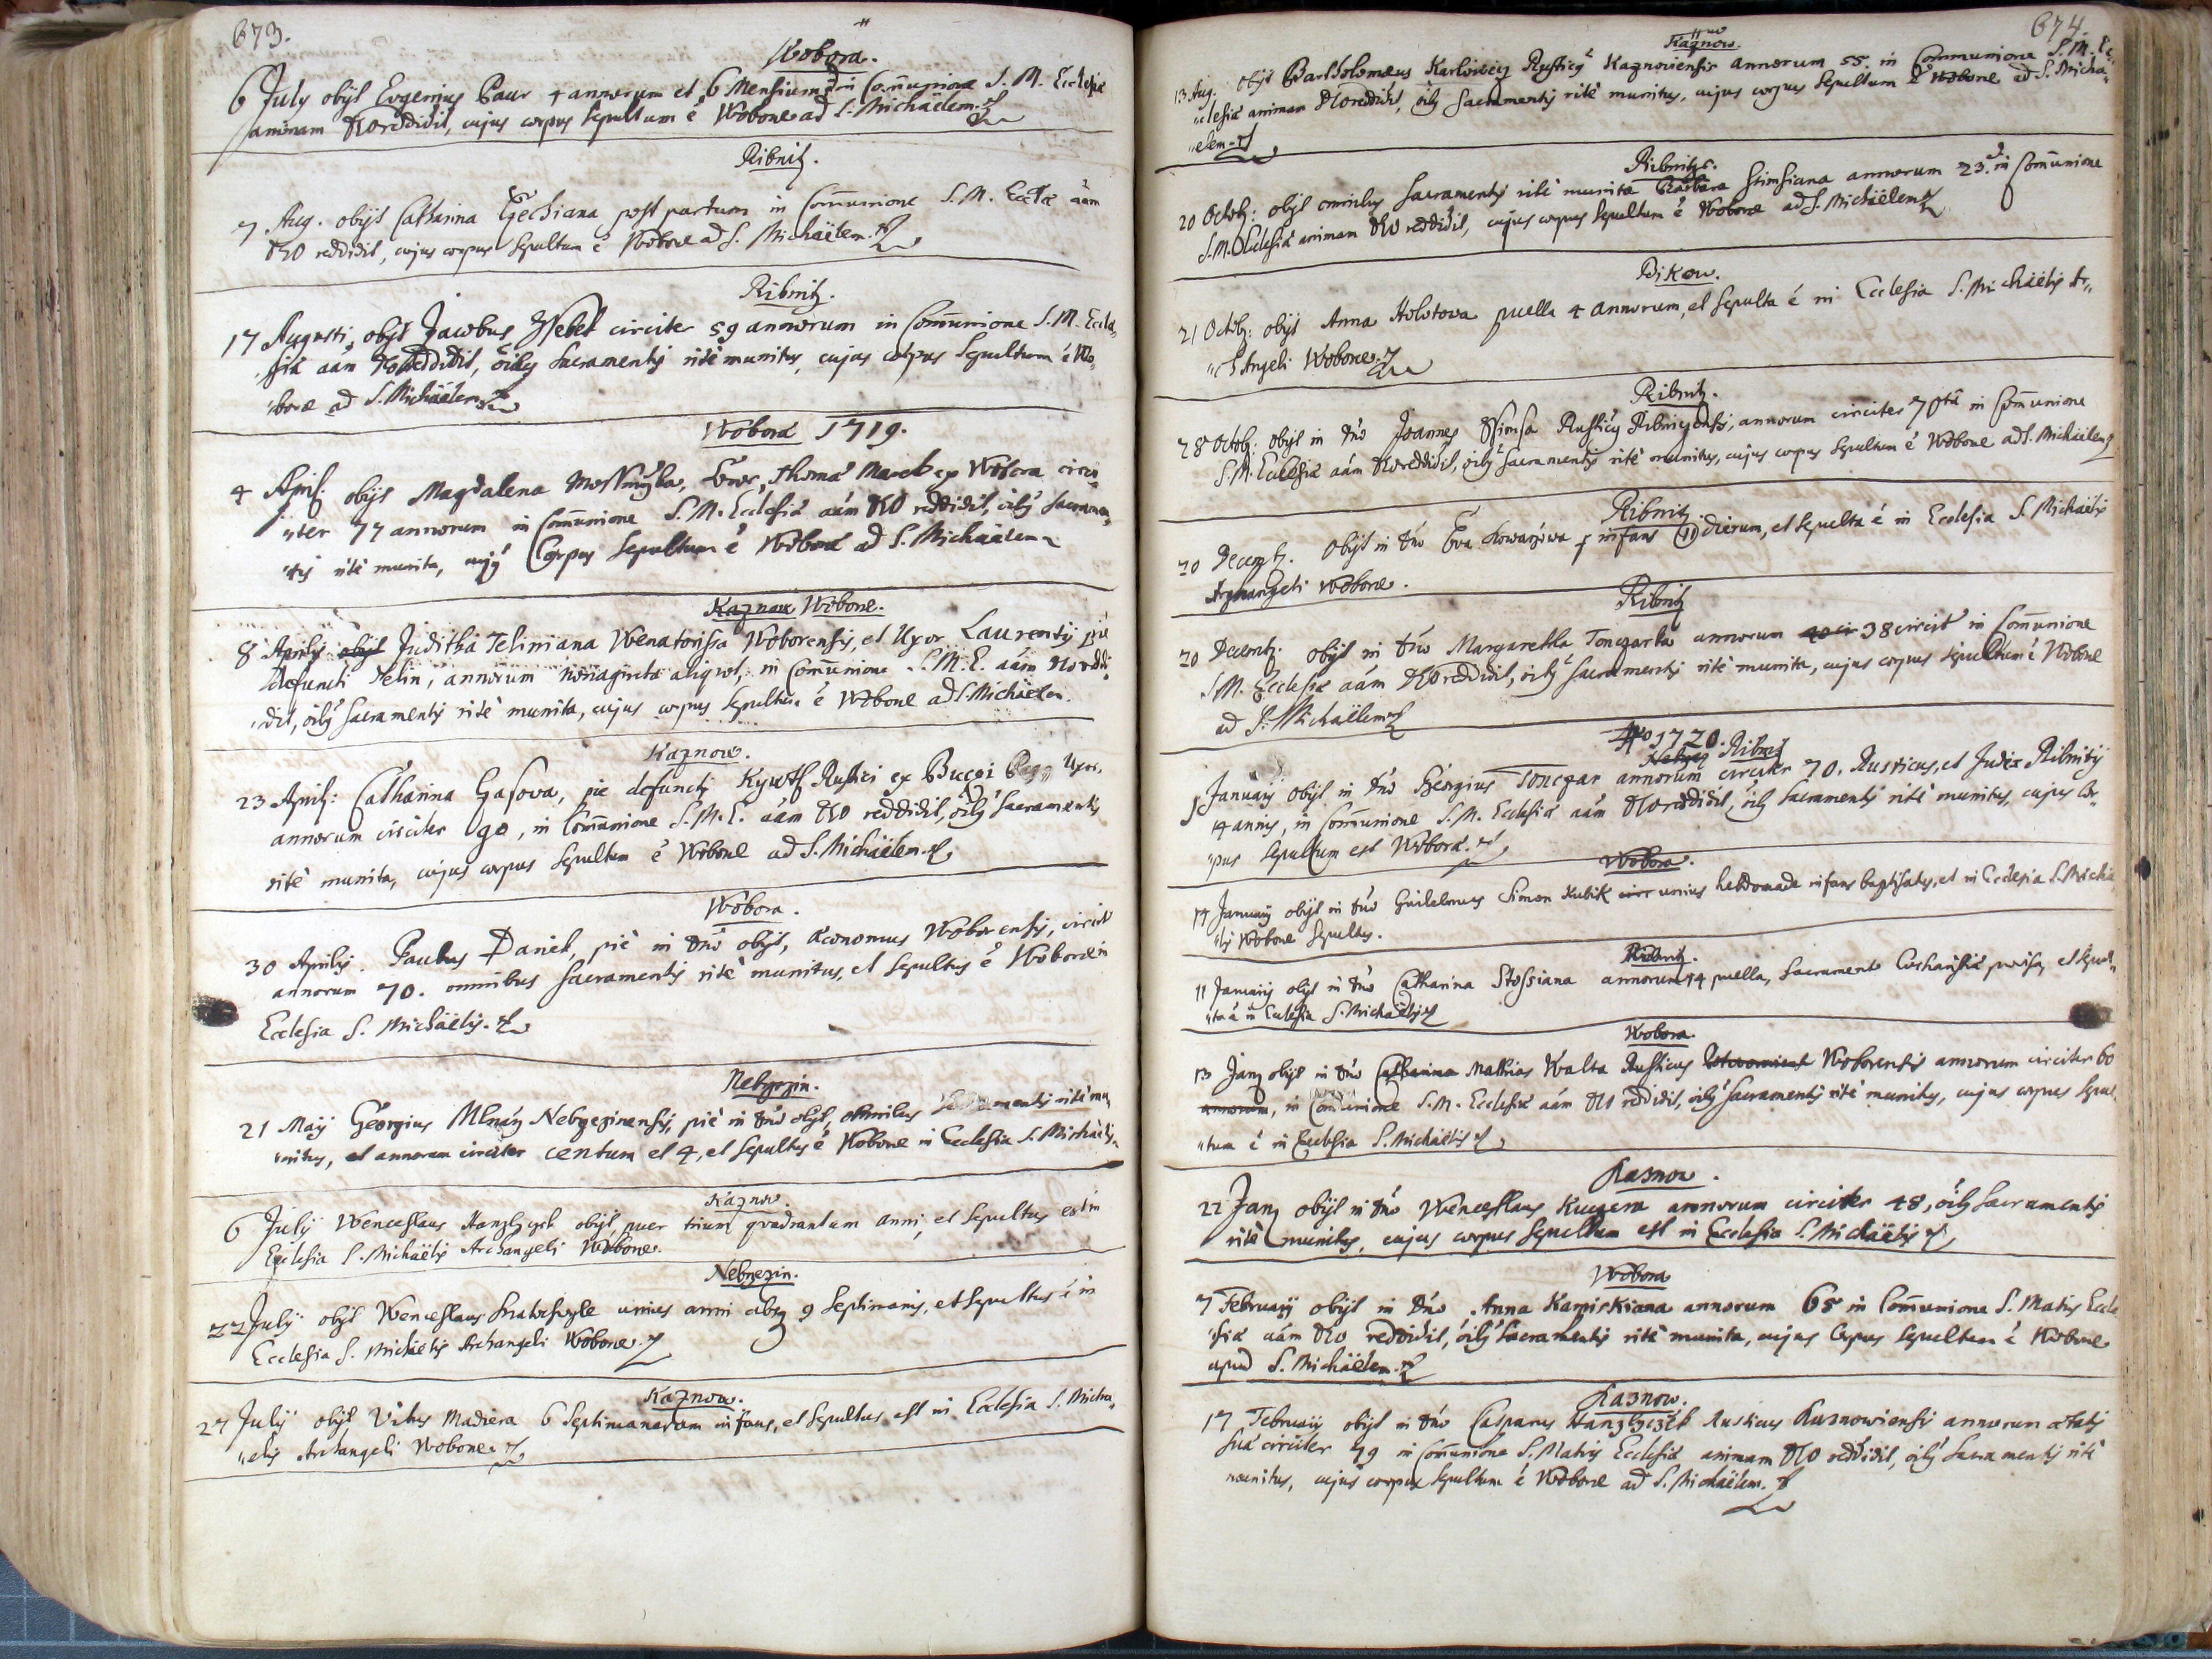 673.
Wobora.
6 July obijt Evgenius Paur 4 annorum et 6 Mensium in Com̄unione S. M. Ecclesiæ
animam Deo reddidit, cujus corpus sepultum ē Woboræ ad S. Michaelem.
Ribnitz.
7 Aug. obijt Catharina post partum in Com̄unione S. M. Ecclæ aām
DEO reddidit, cujus corpus sepultum ē Woboræ ad S. Michaëlem.
Ribnitz.
17 Augusti, obijt Jacobus circiter 59 annorum in Com̄unione S. M. Eccle„
„siæ aām DEO reddidit, oīby sacramentis ritè munitus, cujus corpus sepultum ē Wo„
„boræ ad S. Michaëlem.
Woboræ 1719.
4 April: obijt Magdalena Uxor Thomæ Marek ex Wobora circi„
„ter 77 annorum in Com̄unione S. M. Ecclesiæ aām DEO reddidit, oīby sacramen„
„tis ritè munita, cujus Corpus sepultum ē Woboræ ad S. Michaëlem
Kaznow Woboræ.
8 Aprilis obijt Juditha Teliniana Venatorissa Woborensis, et Uxor Laurentij piè
defuncti Telin, annorum nonaginta aliquot, in Com̄unione S. M. E. aām Deo reddi„
„dit, oīby sacramentis ritè munita, cujus corpus sepultum ē Woboræ ad S. Michaëlem.
Kaznow.
23 April: Catharina Gasowa, pie defuncti Rustici ex Uxor,
annorum circiter 90, in Com̄unione S. M. E. aām DEO reddidit, oīby sacramentis
ritè munita, cujus corpus sepultum ē Woboræ ad S. Michaëlem.
Wobora.
30 Aprilis. Paulus Daniel, piè in Dnō obijt, œconomus Woborensis, circit
annorum 70. omnibus sacramentis ritè munitus, et sepultus ē Woboræ in
Ecclesia S. Michaëlis.
Nebrzezin.
21 Maij Georgius Mlnarz Nebrzezinensis, piè in Dnō obijt, omnibus Sacramentis ritè mu„
„nitus, et annorum circiter centum et 4, et sepultus ē Woboræ in Ecclesia S. Michaëlis.
Kaznow.
6 Julij Wenceslaus obijt, puer trium quadrantum anni, et sepultus est in
Ecclesia S. Michaëlis Archangeli Woboræ.
Nebrzezin.
22 Julij obijt Wenceslaus unius anni absq 9 septimanis, et sepultus ē in
Ecclesia S. Michaëlis Archangeli Woboræ.
Kaznow.
27 Julij obijt Vitus Madiera 6 septimanarum infans, et sepultus est in Ecclesia S. Micha„
„ëlis Archangeli Woboræ.
674.
Kaznow.
13 Aug. obijt Bartholomæus Karlovicz Rusticus Kaznoviensis annorum 55. in Communione S. M. Ec„
„clesiæ animam DEO reddidit, oīby sacramentis ritè munitus, cujus corpus sepultum ē Woboræ ad S. Micha„
„ëlem.
Ribnitz.
20 Octob: obijt omnibus sacramentis ritè munita Barbara Stimsiana annorum 23. in Com̄unione
S. M. Ecclesiæ animam DEO reddidit, cujus corpus sepultum ē Woboræ ad S. Michaëlem
Bikow.
21 Octob: obijt Anna Holotowa puella 4 annorum, et sepulta ē in Ecclesia S. Michaëlis Ar„
„changeli Woboræ.
Ribnitz.
28 Octob: obijt in Dnō Joannes Rusticus Ribnicensis, annorum circiter 70tā in Com̄unione
S. M. Ecclesiæ aām DEO reddidit, oīby sacramentis ritè munitus, cujus corpus sepultum ē Woboræ ad S. Michaëlem
Ribnitz.
20 Decemb. Obijt in Dnō Eva Kowarzowa infans 11 dierum, et sepulta ē in Ecclesia S. Michaëlis
Archangeli Woboræ.
Ribnitz
20 Decemb. obijt in Dnō Margaretha Tonczarka annorum 40 cir 38 circit in Com̄unione
S. M. Ecclesiæ aām DEO reddidit, oīby sacramentis ritè munita, cujus corpus sepultum ē Woboræ
ad S. Michaëlem
Aō 1720.
Nebrzez Ribnitz
1 Januarij obijt in Dnō Georgius Tonczar annorum circiter 70. Rusticus, et Judex Ribnitij
14 annis, in Com̄unione S. M. Ecclesiæ aām DEO reddidit, oīby sacramentis ritè munitus, cujus Cor„
„pus sepultum est Woboræ.
Wobora.
14 Januarij obijt in Dnō Guilelmus Simon Kubik circ unius hebdomadæ infans baptisatus, et in Ecclesia S. Michaë
„lis Woboræ sepultus.
Ribnitz.
11 Januarij obijt in Dnō Catharina Stossiana annorum 14 puella, Sacramento Eucharistiæ provisa, et sepul„
„ta ē in Ecclesia S. Michaëlis
Wobora.
13 Janu obijt in Dnō Catharina Mathias Walta Rusticus Woborensis annorum circiter 60
annorum, in Com̄unione S. M. Ecclesiæ aām DEO reddidit, oīby sacramentis ritè munitus, cujus corpus sepul„
„tum ē in Ecclesia S. Michaëlis
Kasnow.
22 Janu obijt in Dnō Wenceslaus Kuczera annorum circiter 48, oīby sacramentis
ritè munitus, cujus corpus sepultum est in Ecclesia S. Michaëlis
Wobora
7 Februarij obijt in Dnō Anna Karpiskiana annorum 65 in Com̄unione S. Matris Eccle
„siæ aām DEO reddidit, oīby sacramentis ritè munita, cujus Corpus sepultum ē Woboræ
apud S. Michaëlem.
Kasnow.
17 Februarij obijt in Dnō Casparus Hanzlyczek Rusticus Kasnowiensis annorum ætatis
suæ circiter 49 in Com̄unione S. Matris Ecclesiæ animam DEO reddidit, oīby sacramentis ritè
munitus, cujus corpus sepultum ē Woboræ ad S. Michaëlem.